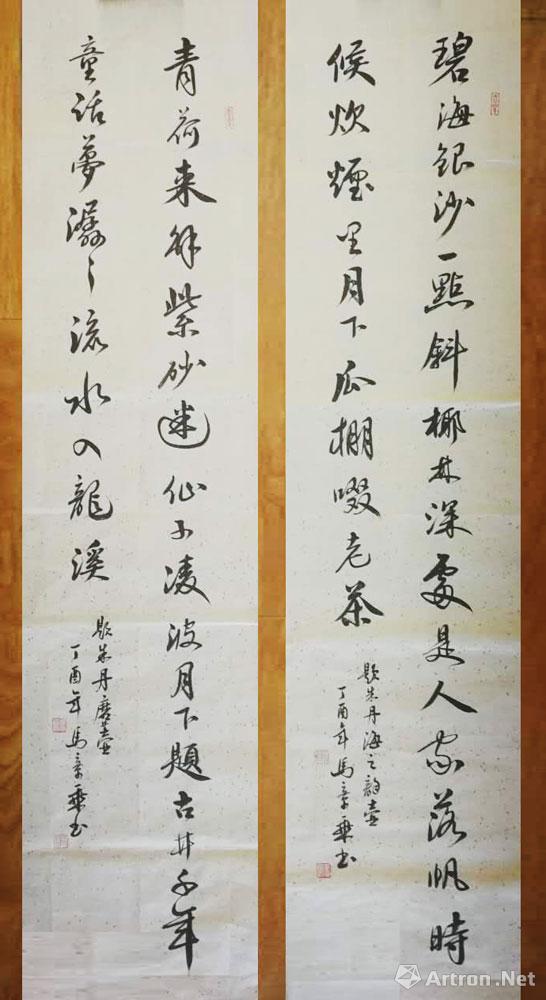 碧海銀沙一點斜椰林深處是人家落帆時
候炊煙里月下瓜棚啜老茶
題朱丹海之韵壺
丁酉年馬章乘书
青荷来解紫砂迷仙子凌波月下題古井千年
童話夢潺々流水入龍溪
題朱丹磨壺
丁酉年馬章乘书
Artron.Net